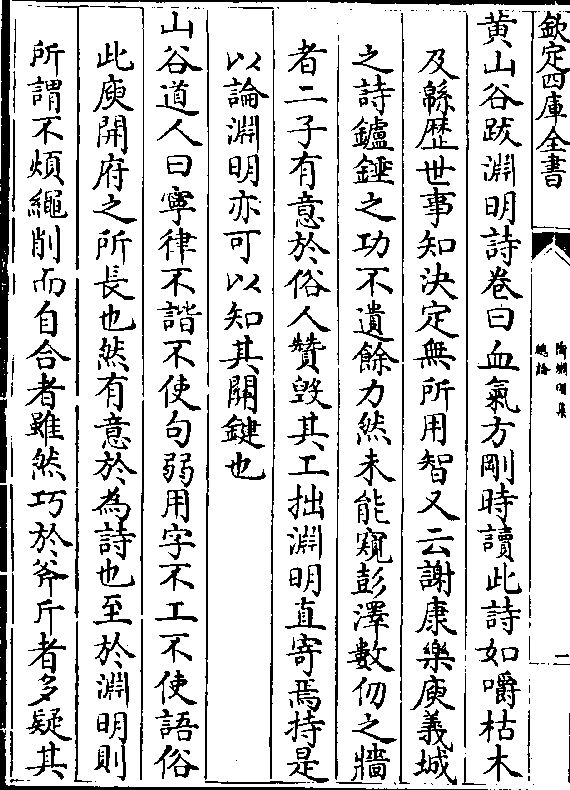 欽定四庫全書
陶淵明集
總論
一
黃山谷跋淵明詩卷曰血氣方剛時讀此詩如嚼枯木
及緜歴世事知決定無所用智又云謝康樂庾義城
之詩鑪錘之功不遺餘力然未能窺彭澤數仞之牆
者二子有意於俗人贊毁其工拙淵明直寄焉持是
以論淵明亦可以知其關鍵也
山谷道人曰寧律不諧不使句弱用字不工不使語俗
此庾開府之所長也然有意於為詩也至於淵明則
所謂不煩繩削而自合者雖然巧於斧斤者多疑其